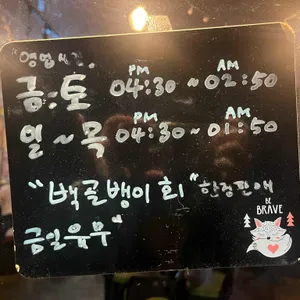 영업시간
PM AM
금.토 04:30 ~ 02:50
PM AM
일 ~ 목 04:30 ~ 01:50
"백골뱅이 회" 한정판매
금일육우"
BE
BRAVE